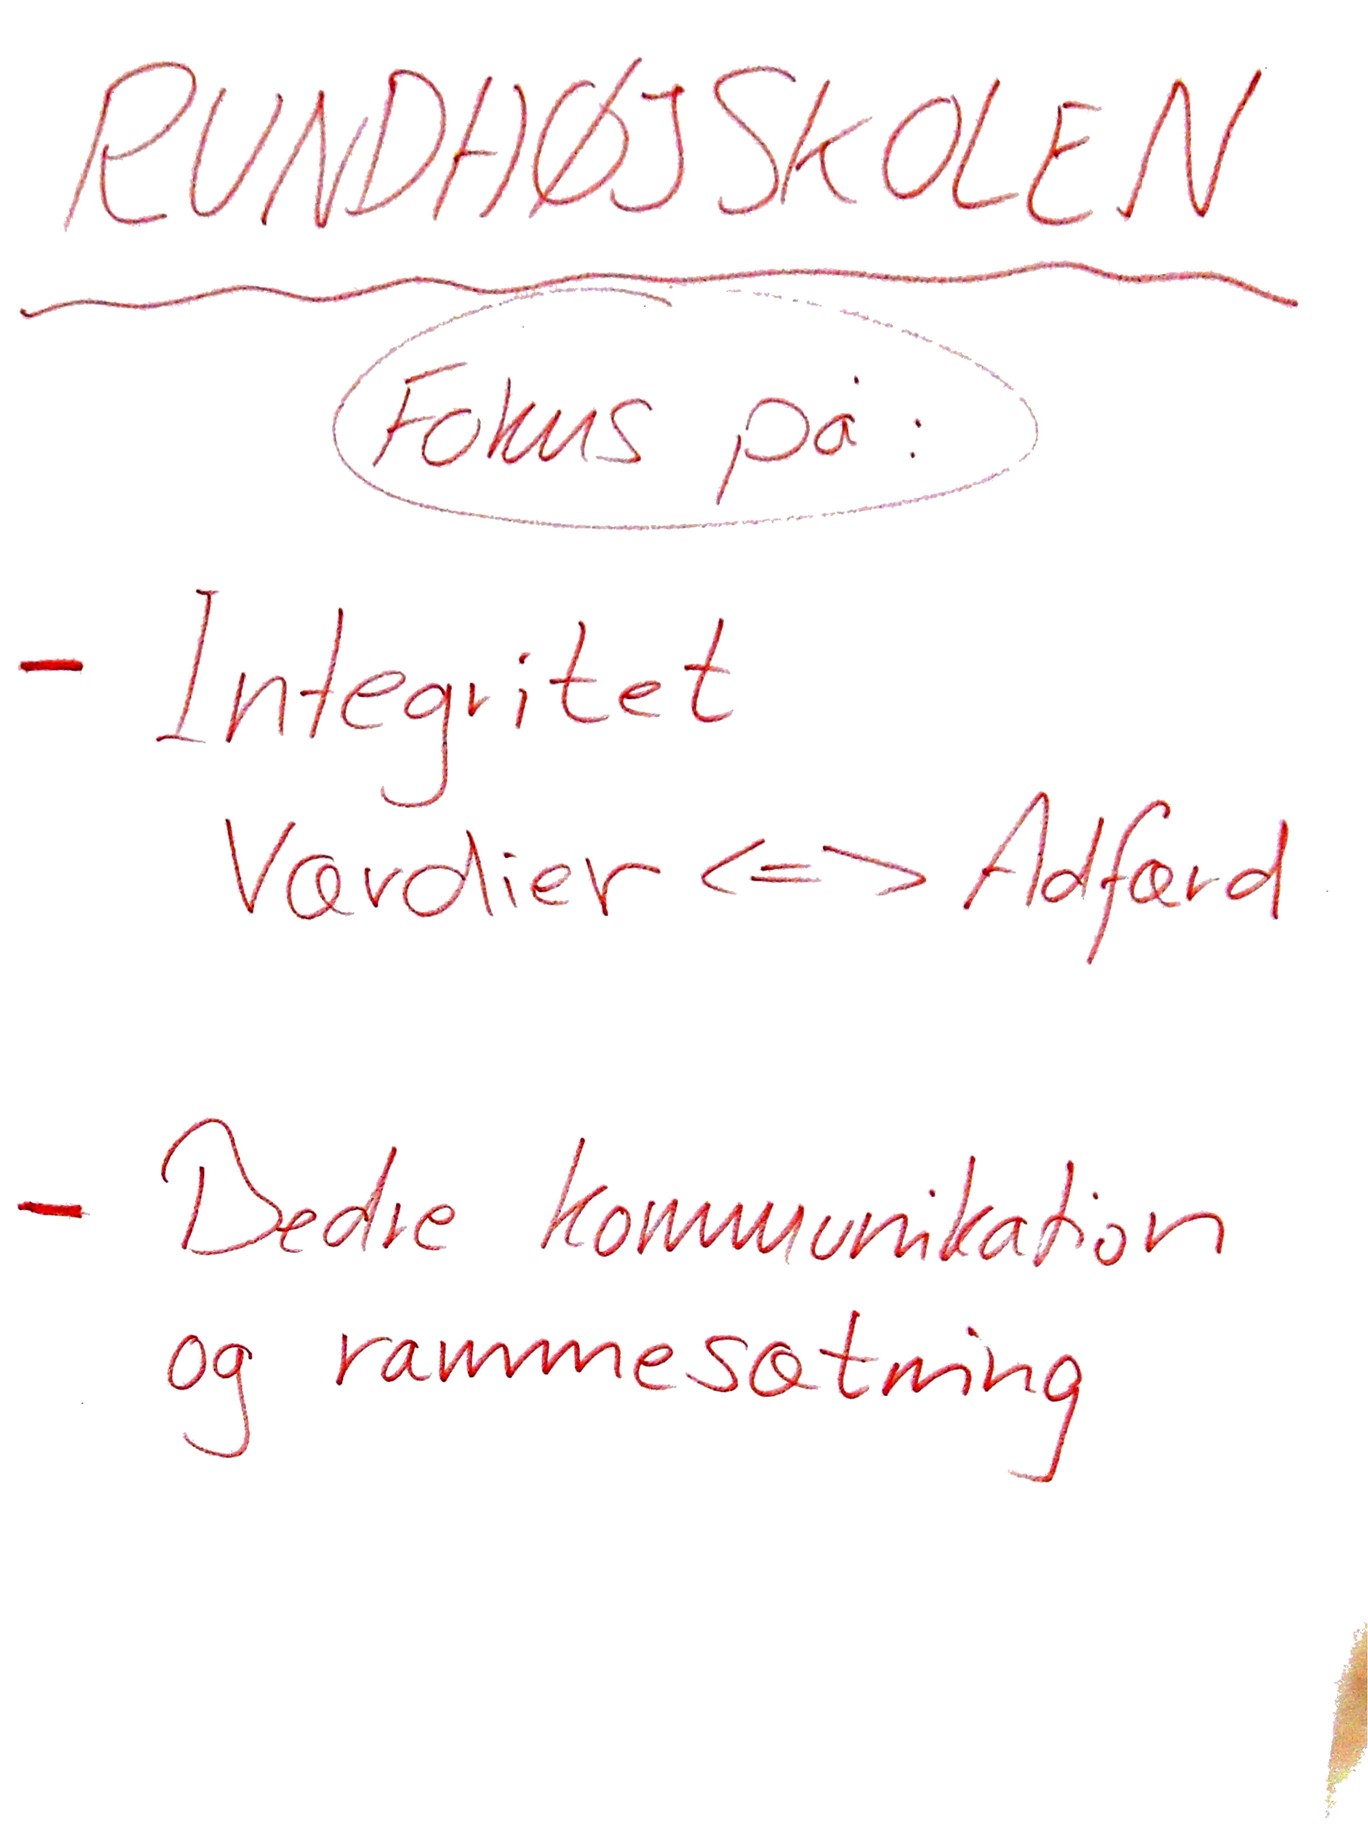 RUNDHØJSKOLEN
Fokus på:
- Integritet
Værdier <=> Adfærd
- Bedre kommunikation
og rammesætning